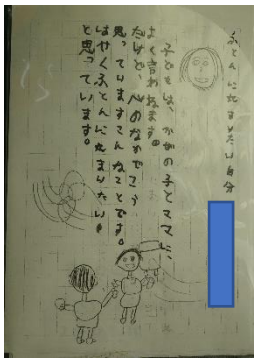 ふとんに丸まりたい自分
子どもは、かぜの子とママに、
よく言われます。
だけど、心のなかでこう
思っていますこんなことです。
はやくふとんに丸まりたい！
と思っています。